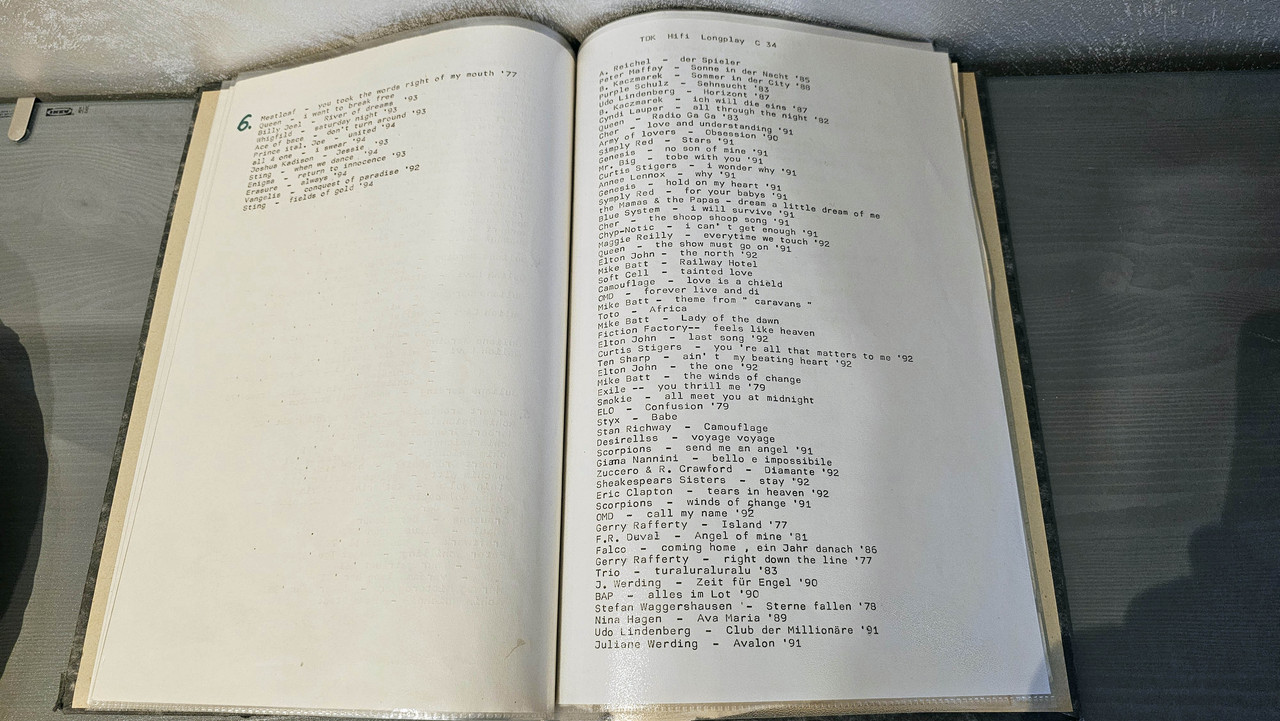 6.
Meatloaf - you took the words right of my mouth '77
Queen - i want to break free
Billy Joel - River of dreams '93
Whigfild - saturday night '93
Ace of bace - don't turn around '93
Prince ital. Joe - united '94
all 4 one - i swear '94
Joshua Kadison - Jessie '93
Sting - when we dance '94
Enigma - return to innocence '93
Erasure - always '94
Vangelis - conquest of paradise '92
Sting - fields of gold '94
TDK Hifi Longplay C 34
A. Reichel - der Spieler
Peter Maffay - Sonne in der Nacht '85
B. Kaczmarek - Sommer in der City '88
Purple Schulz - Sehnsucht '83
Udo Lindenberg - Horizont '87
B. Kaczmarek - ich will die eins '87
Cyndi Lauper - all through the night '82
Queen - Radio Ga Ga '83
Cher - love and understanding '91
Army of lovers - Obsession '90
Simply Red - Stars '91
Genesis - no son of mine '91
Mr. Big - tobe with you '91
Curtis Stigers - i wonder why '91
Annee Lennox - why '91
Genesis - hold on my heart '91
Symply Red - for your babys '91
the Mamas & the Papas - dream a little dream of me
Blue System - i will survive '91
Cher - the shoop shoop song '91
Chyp-Notic - i can' t get enough '91
Maggie Reilly - everytime we touch '92
Queen - the show must go on '91
Elton John - the north '92
Mike Batt - Railway Hotel
Soft Cell - tainted love
Camouflage - love is a chield
OMD - forever live and di
Mike Batt - theme from " caravans "
Toto - Africa
Mike Batt - Lady of the dawn
Fiction Factory-- feels like heaven
Elton John - last song '92
Curtis Stigers - you 're all that matters to me '92
Ten Sharp - ain' t my beating heart '92
Elton John - the one '92
Mike Batt - the winds of change
Exile -- you thrill me '79
Smokie - all meet you at midnight
ELO - Confusion '79
Styx - Babe
Stan Richway - Camouflage
Desirellss - voyage voyage
Scorpions - send me an angel '91
Giana Nannini - bello e impossibile
Zuccero & R. Crawford - Diamante '92
Sheakespears Sisters - stay '92
Eric Clapton - tears in heaven '92
Scorpions - winds of change '91
OMD - call my name '92
Gerry Rafferty - Island '77
F.R. Duval - Angel of mine '81
Falco - coming home , ein Jahr danach '86
Gerry Rafferty - right down the line '77
Trio - turaluraluralu '83
J. Werding - Zeit für Engel '90
BAP - alles im Lot '90
Stefan Waggershausen - Sterne fallen '78
Nina Hagen - Ava Maria '89
Udo Lindenberg - Club der Millionäre '91
Juliane Werding - Avalon '91